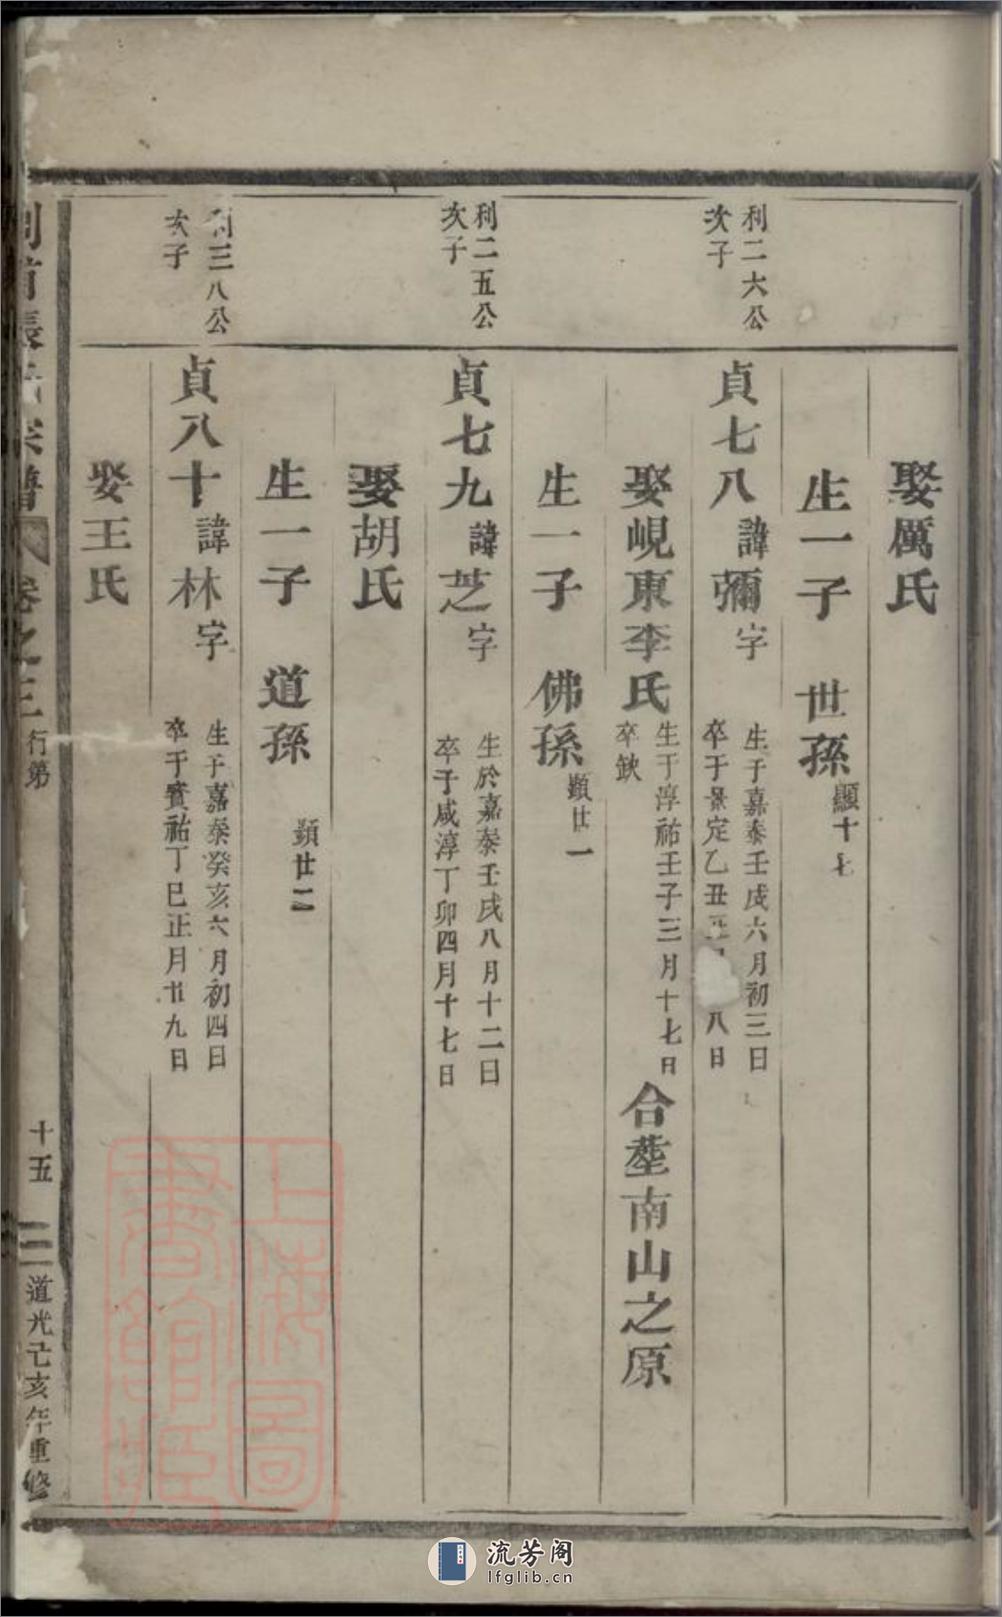 娶厲氏
生一子 世孫 顯十七
利二六公
次子
貞七八 諱 彌 字
生于嘉泰壬戌六月初三日
卒于景定乙丑正 八日
娶峴東李氏
生于淳祐壬子三月十七日
卒缺
合塟南山之原
生一子 佛孫 顯廿一
利二五公
次子
貞七九 諱 芝 字
生於嘉泰壬戌八月十二日
卒于咸淳丁卯四月十七日
娶胡氏
生一子 道孫 顯廿二
利三八公
次子
貞八十 諱 林 字
生于嘉泰癸亥六月初四日
卒于寳祐丁巳正月廿九日
娶王氏
宗譜 卷之三 行第 十五 道光己亥年重修
上海圖
書館藏
流芳阁
lfglib.cn